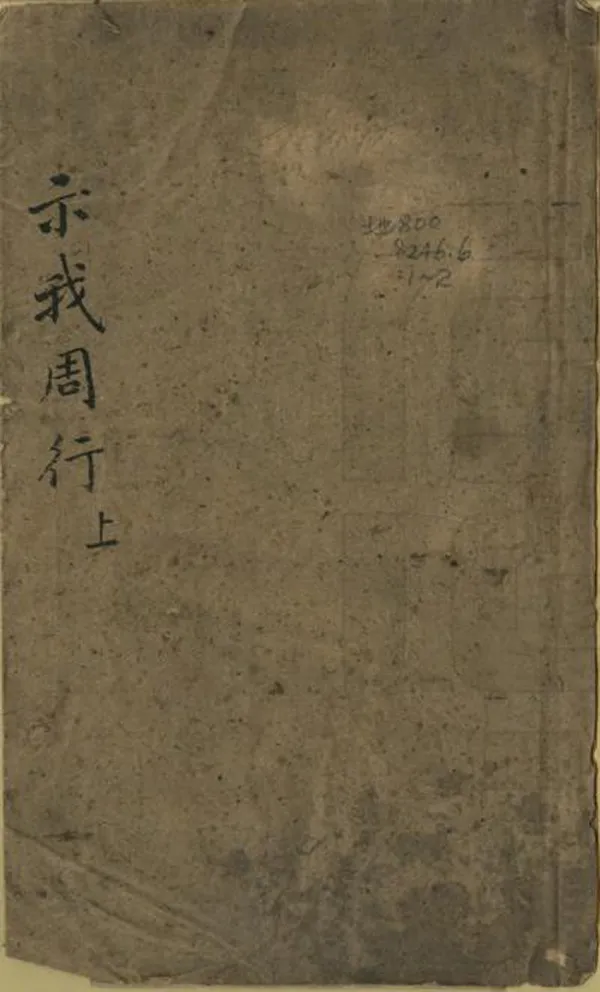 示我周行
上
地800
8246.6
:1~2